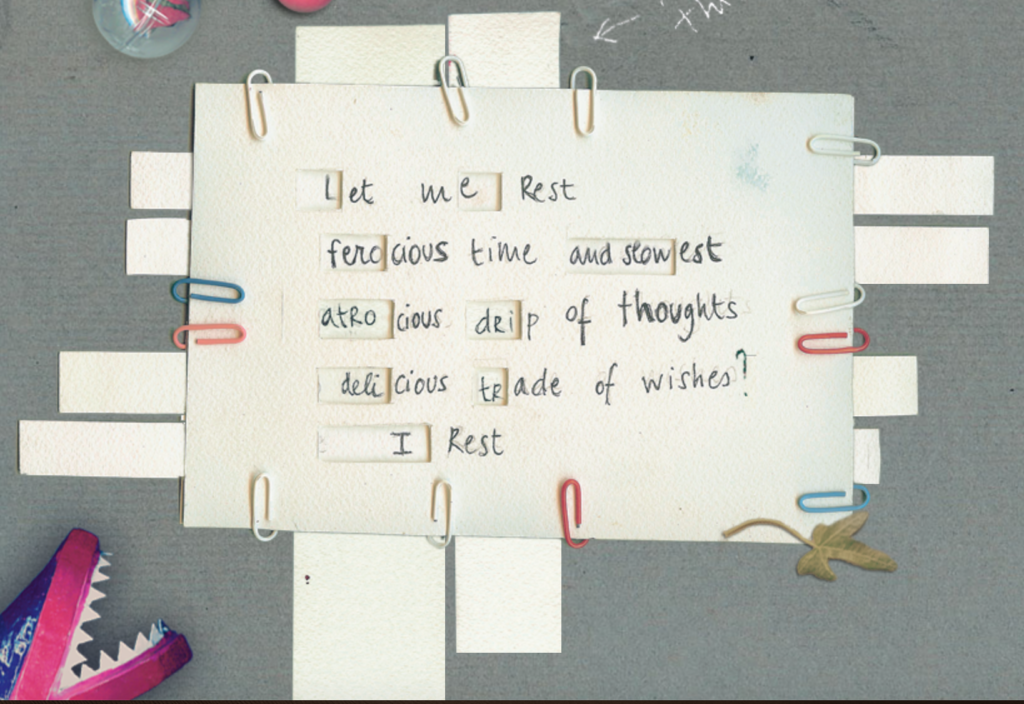 Let me Rest
ferocious time and slowest
atRocious dRip of thoughts
delicious tRade of wishes?
I Rest